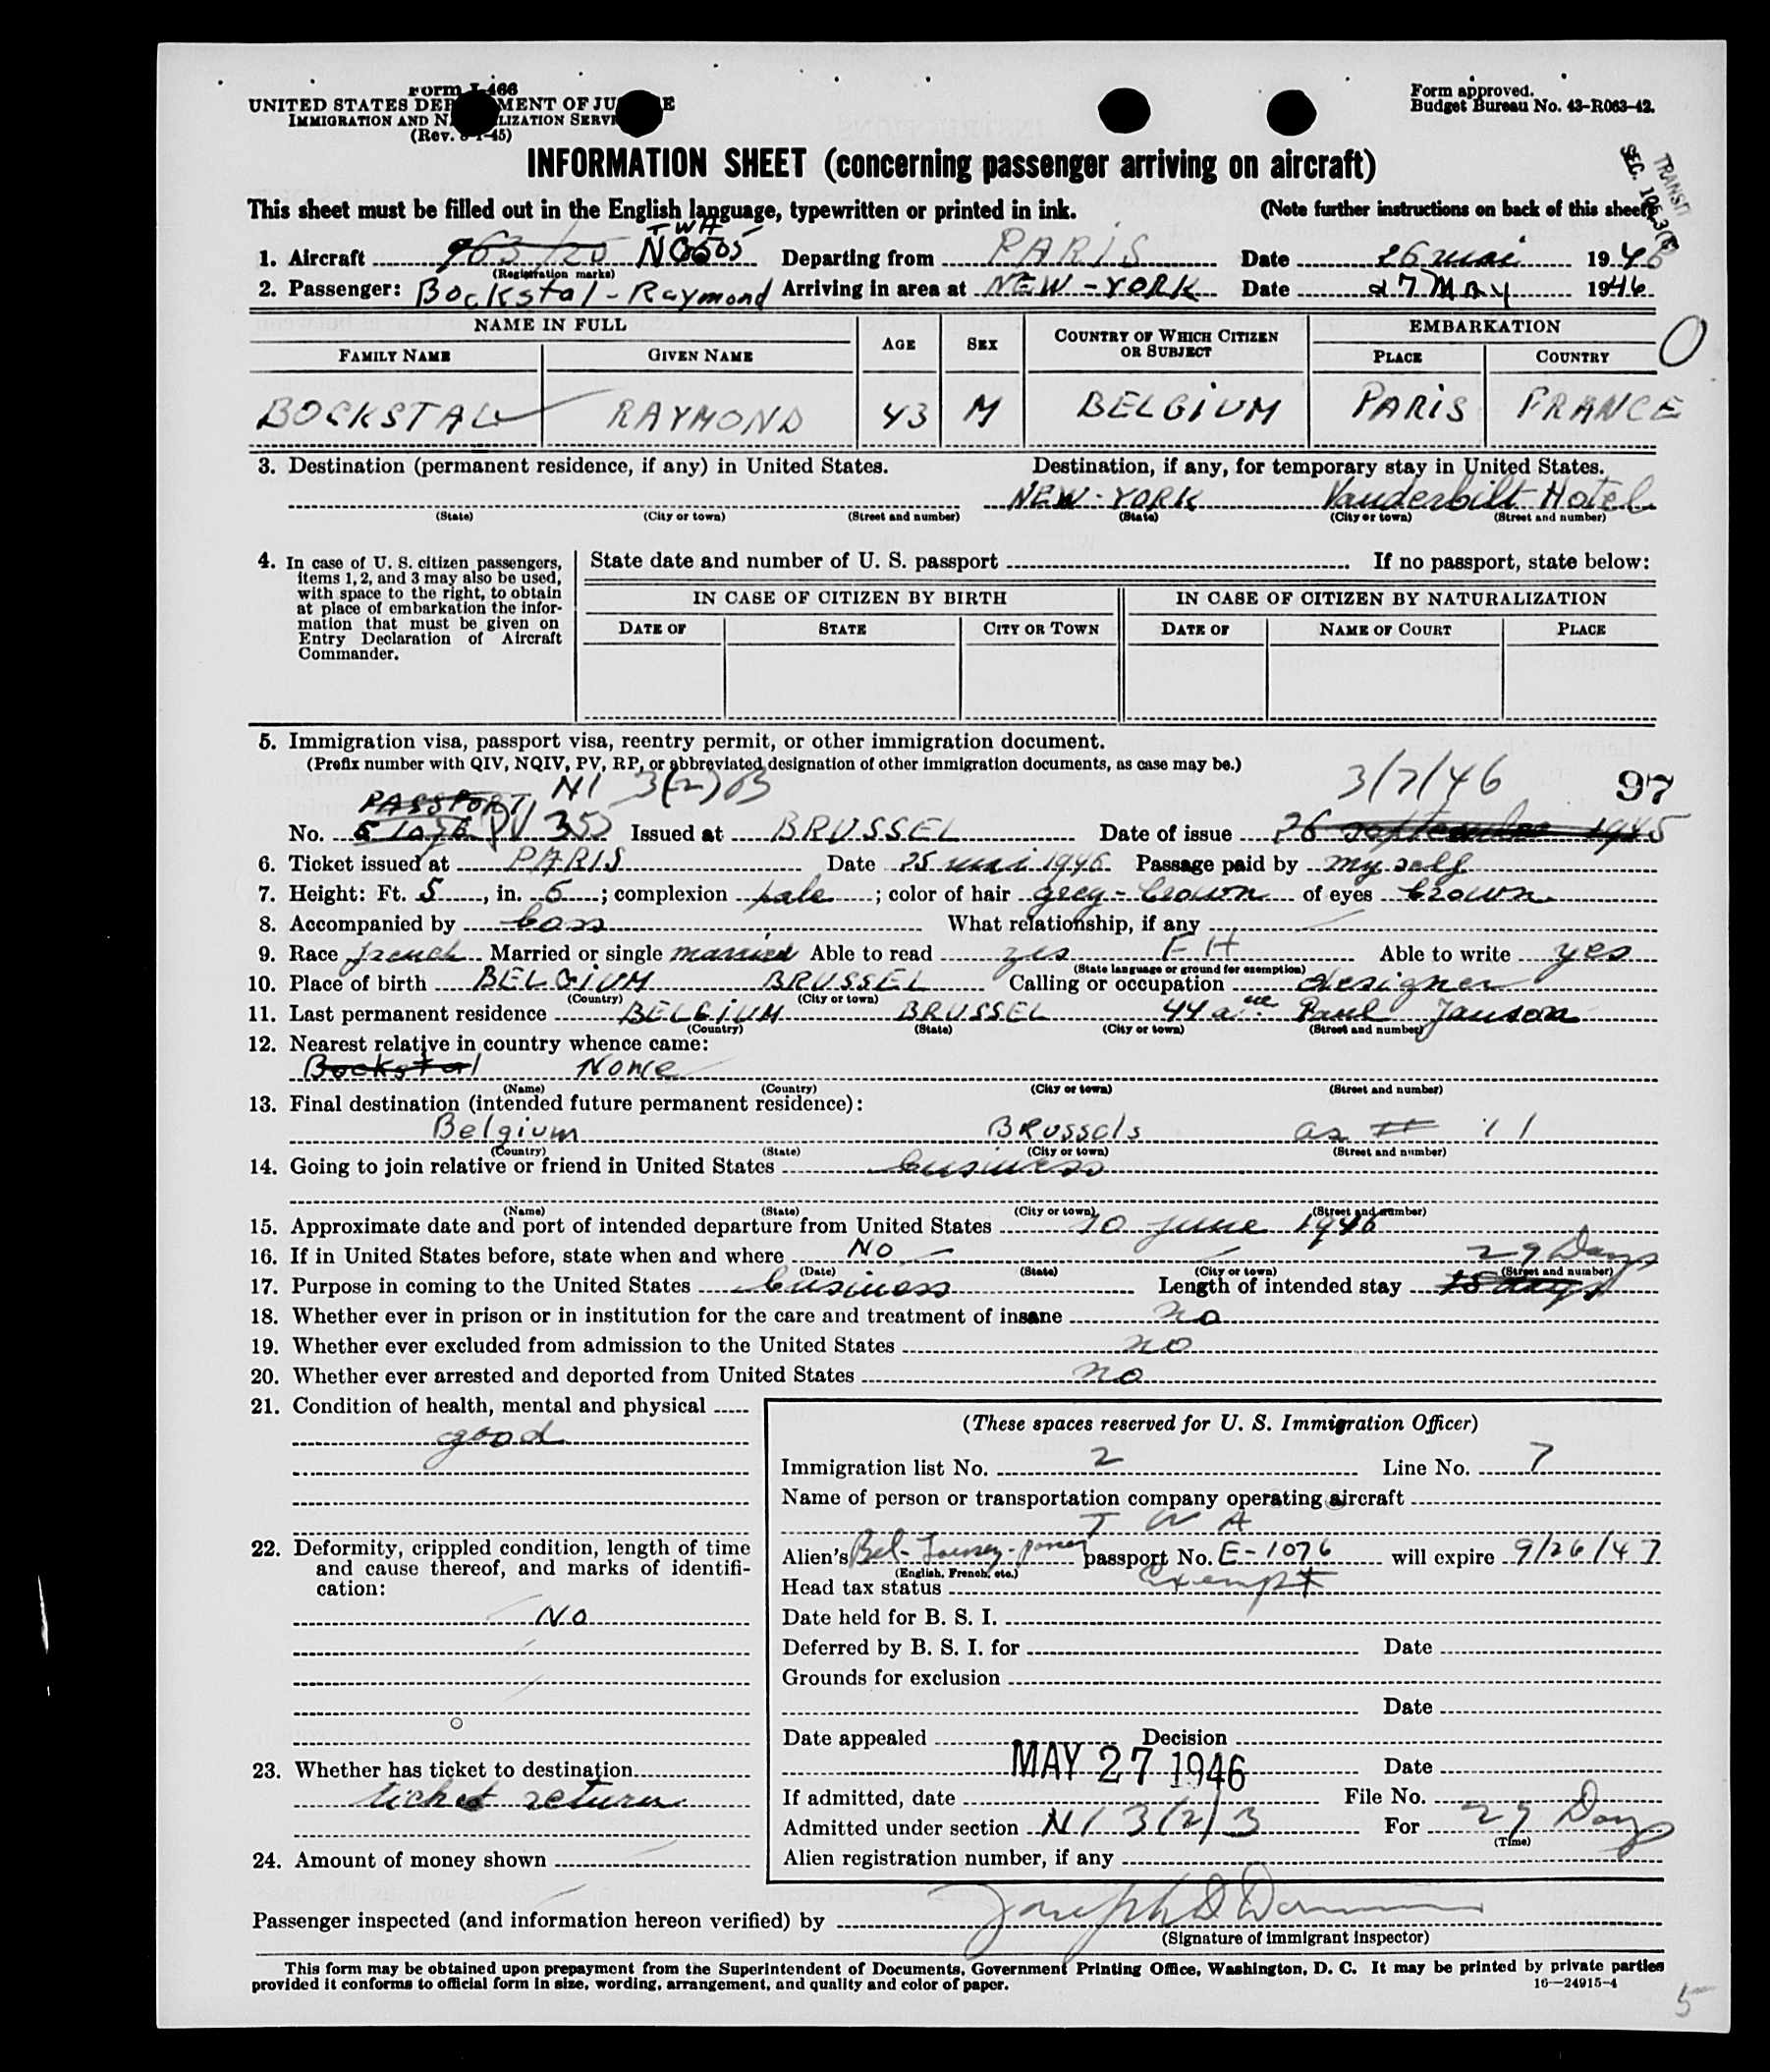 Form I-466
UNITED STATES DEP MENT OF JU E
IMMIGRATION AND N LIZATION SERVI
(Rev. -45)
Form approved.
Budget Bureau No. 43-R063-42.
TRANSIT
SEC.
INFORMATION SHEET (concerning passenger arriving on aircraft)
This sheet must be filled out in the English language, typewritten or printed in ink. (Note further instructions on back of this sheet)
TWA
1. Aircraft Departing from PARIS Date 26 mai 1946
(Registration marks)
2. Passenger: Bockstal-Raymond Arriving in area at NEW-YORK Date 27 May 1946
NAME IN FULL AGE SEX COUNTRY OF WHICH CITIZEN OR SUBJECT EMBARKATION
FAMILY NAME GIVEN NAME PLACE COUNTRY
BOCKSTAL RAYMOND 43 M BELGIUM PARIS FRANCE
3. Destination (permanent residence, if any) in United States. Destination, if any, for temporary stay in United States.
NEW-YORK Vanderbilt Hotel
(State) (City or town) (Street and number) (State) (City or town) (Street and number)
4. In case of U. S. citizen passengers, items 1, 2, and 3 may also be used, with space to the right, to obtain at place of embarkation the information that must be given on Entry Declaration of Aircraft Commander.
State date and number of U. S. passport If no passport, state below:
IN CASE OF CITIZEN BY BIRTH IN CASE OF CITIZEN BY NATURALIZATION
DATE OF STATE CITY OR TOWN DATE OF NAME OF COURT PLACE
5. Immigration visa, passport visa, reentry permit, or other immigration document.
(Prefix number with QIV, NQIV, PV, RP, or abbreviated designation of other immigration documents, as case may be.)
PASSPORT NI 3(2)B 3/7/46 97
No. PV 355 Issued at BRUSSEL Date of issue 26 septembre 1945
6. Ticket issued at PARIS Date 25 mai 1946 Passage paid by my self
7. Height: Ft. 5, in. 6; complexion pale; color of hair grey-brown of eyes brown
8. Accompanied by boss What relationship, if any
9. Race french Married or single married Able to read yes FH Able to write yes
(State language or ground for exemption)
10. Place of birth BELGIUM BRUSSEL Calling or occupation designer
(Country) (City or town)
11. Last permanent residence BELGIUM BRUSSEL 44 ave Paul Janson
(Country) (State) (City or town) (Street and number)
12. Nearest relative in country whence came:
Bockstal None
(Name) (Country) (City or town) (Street and number)
13. Final destination (intended future permanent residence):
Belgium Brussels as # 11
(Country) (State) (City or town) (Street and number)
14. Going to join relative or friend in United States business
(Name) (State) (City or town) (Street and number)
15. Approximate date and port of intended departure from United States 10 june 1946
16. If in United States before, state when and where No 29 Days
(Date) (State) (City or town) (Street and number)
17. Purpose in coming to the United States business Length of intended stay 15 days
18. Whether ever in prison or in institution for the care and treatment of insane no
19. Whether ever excluded from admission to the United States no
20. Whether ever arrested and deported from United States no
21. Condition of health, mental and physical
good
22. Deformity, crippled condition, length of time and cause thereof, and marks of identification:
No
23. Whether has ticket to destination
ticket return
24. Amount of money shown
(These spaces reserved for U. S. Immigration Officer)
Immigration list No. 2 Line No. 7
Name of person or transportation company operating aircraft
TWA
Alien's Bel- passport No. E-1076 will expire 9/26/47
(English, French, etc.)
Head tax status Exempt
Date held for B. S. I.
Deferred by B. S. I. for Date
Grounds for exclusion
Date
Date appealed Decision
MAY 27 1946 Date
If admitted, date File No.
Admitted under section NI 3(2)B For 29 Days
(Time)
Alien registration number, if any
Passenger inspected (and information hereon verified) by Joseph D
(Signature of immigrant inspector)
This form may be obtained upon prepayment from the Superintendent of Documents, Government Printing Office, Washington, D. C. It may be printed by private parties
provided it conforms to official form in size, wording, arrangement, and quality and color of paper.
16—24915-4
5